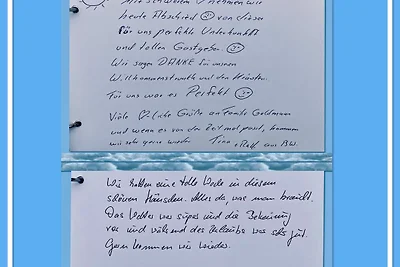 Mit schwerem ♡ nehmen wir
heute Abschied ☹ von dieser
für uns perfekte Unterkunft
und tollen Gastgeber. ☺
Wir sagen DANKE für unseren
Willkommenstrunk und den
Für uns war es Perfekt ☺
Viele ♡liche Grüße an Familie Goldmann
und wenn es von der Zeit mal passt, kommen
wir sehr gerne wieder. Tina + Ralf aus BW.
Wir hatten eine tolle Woche in diesem
schönen Häuschen. Alles da, was man braucht.
Das Wetter war super und die Betreuung
vor und während des Urlaubs war sehr gut.
Gern kommen wir wieder.